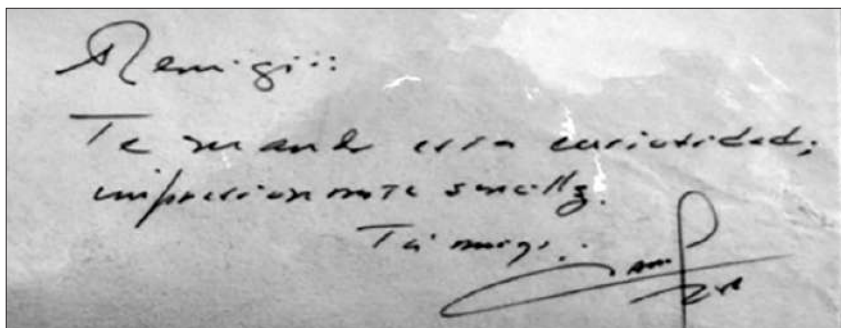 Remigio:
Te mando esta curiosidad;
impresionante sencillez.
Tu amigo: